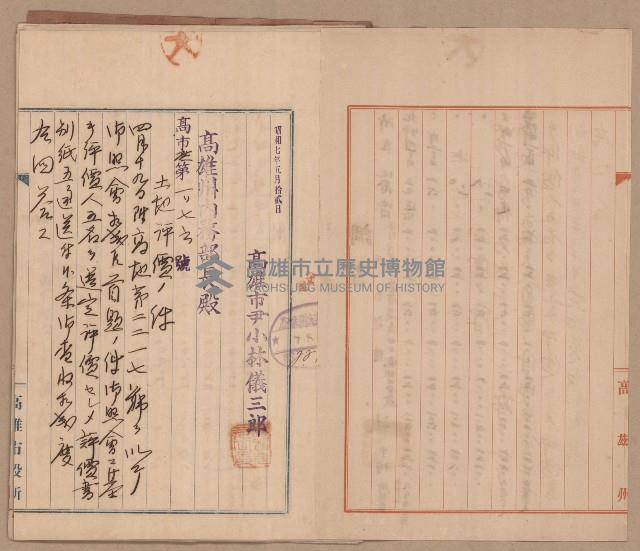 昭和七年五月拾貳日
高雄市尹小林儀三郎
高雄州內務部長殿
高市庶第一一七六號
土地評價ノ件
四月十九日附高地第二三一七號ヲ以テ
御照會相成候首題ノ件御照會ニ基
キ評價人五名ヲ選定評價セシメ評價書
別紙五通送付候條御查收相成度
右回答ス
高雄市役所
高雄州
高雄市立歷史博物館
KAOHSIUNG MUSEUM OF HISTORY